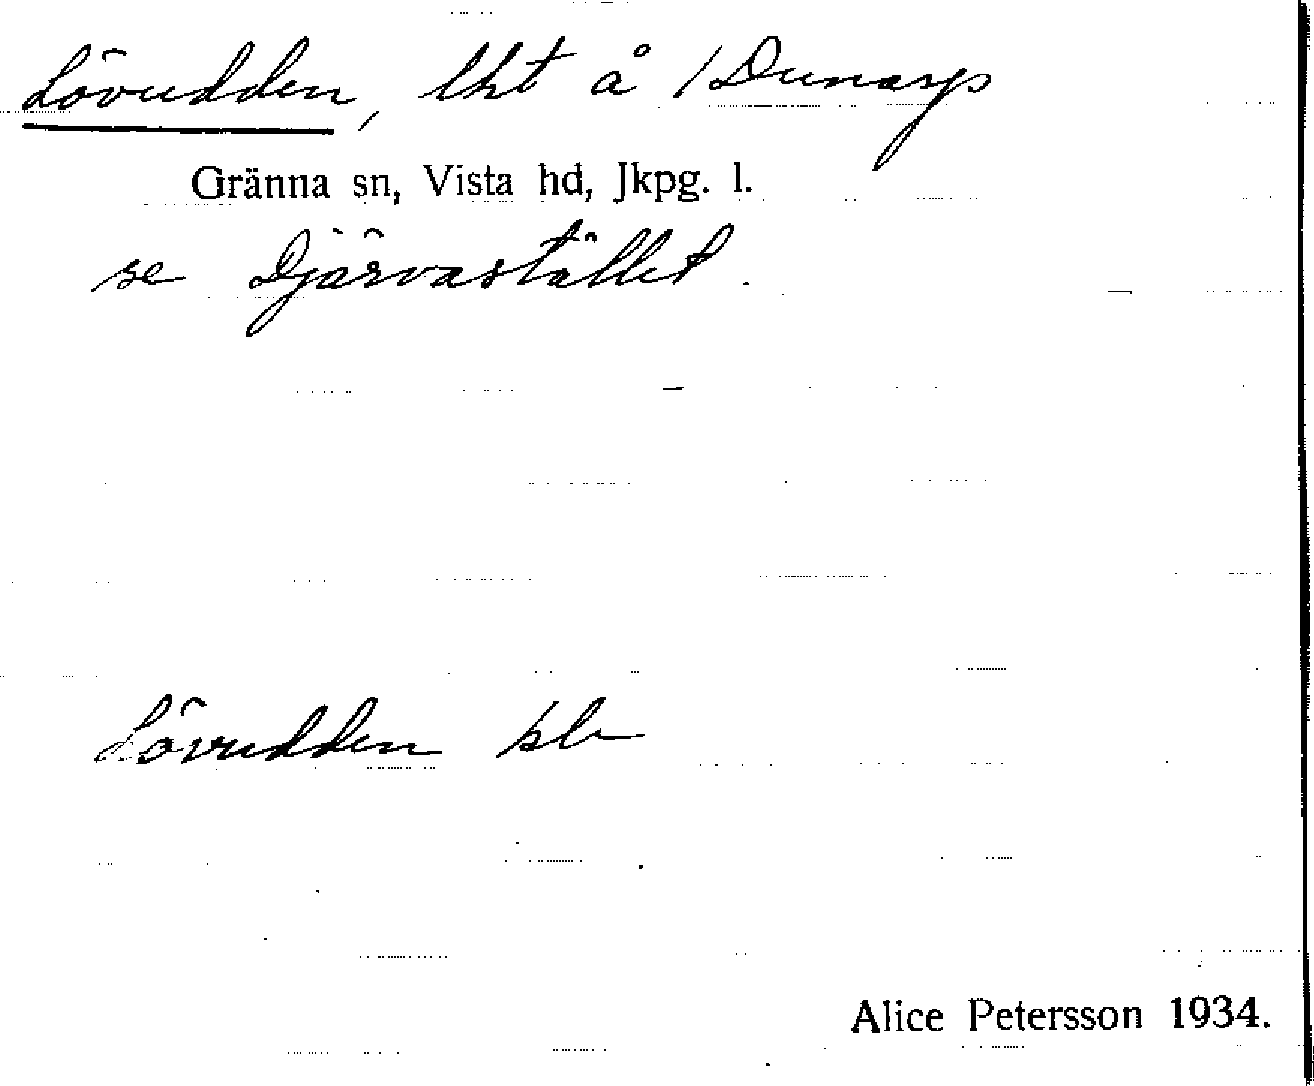 Lövudden, lht å /Dunarp
Gränna sn, Vista hd, Jkpg. l.
se Djärvastället.
Lövudden sb
Alice Petersson 1934.